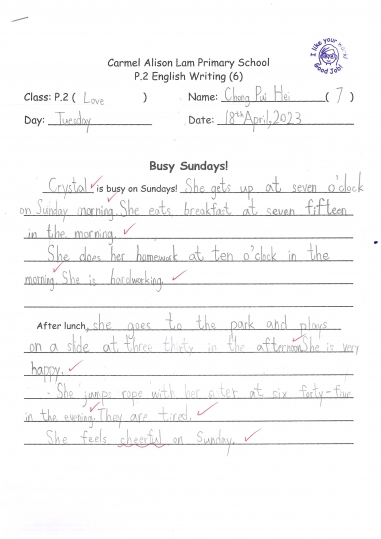 I like your work!
Good Job!
Carmel Alison Lam Primary School
P.2 English Writing (6)
Class: P.2 ( Love ) Name: Chong Pui Hei ( 7 )
Day: Tuesday Date: 18th April, 2023
Busy Sundays!
Crystal is busy on Sundays! She gets up at seven o'clock
on Sunday morning. She eats breakfast at seven fifteen
in the morning.
She does her homework at ten o'clock in the
morning. She is hardworking.
After lunch, she goes to the park and plays
on a slide at three thirty in the afternoon. She is very
happy.
She jumps rope with her at six forty-five
in the evening. They are tired.
She feels cheerful on Sunday.